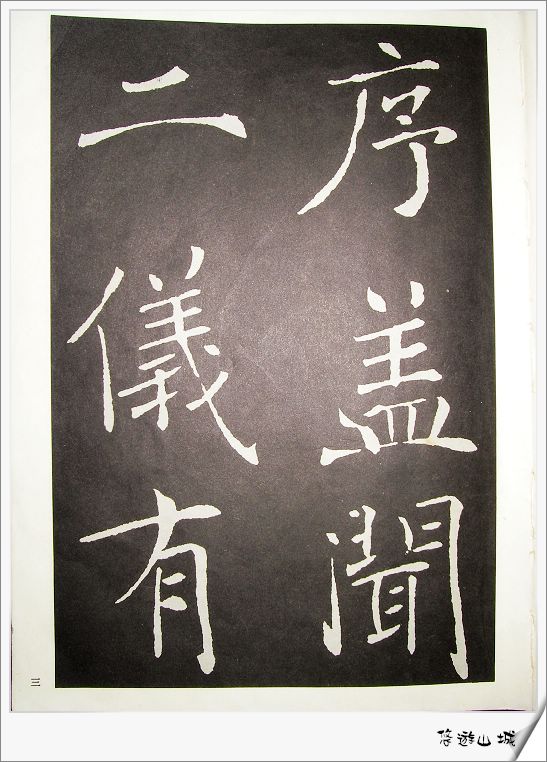 序盖聞
二儀有
三
悠遊山城